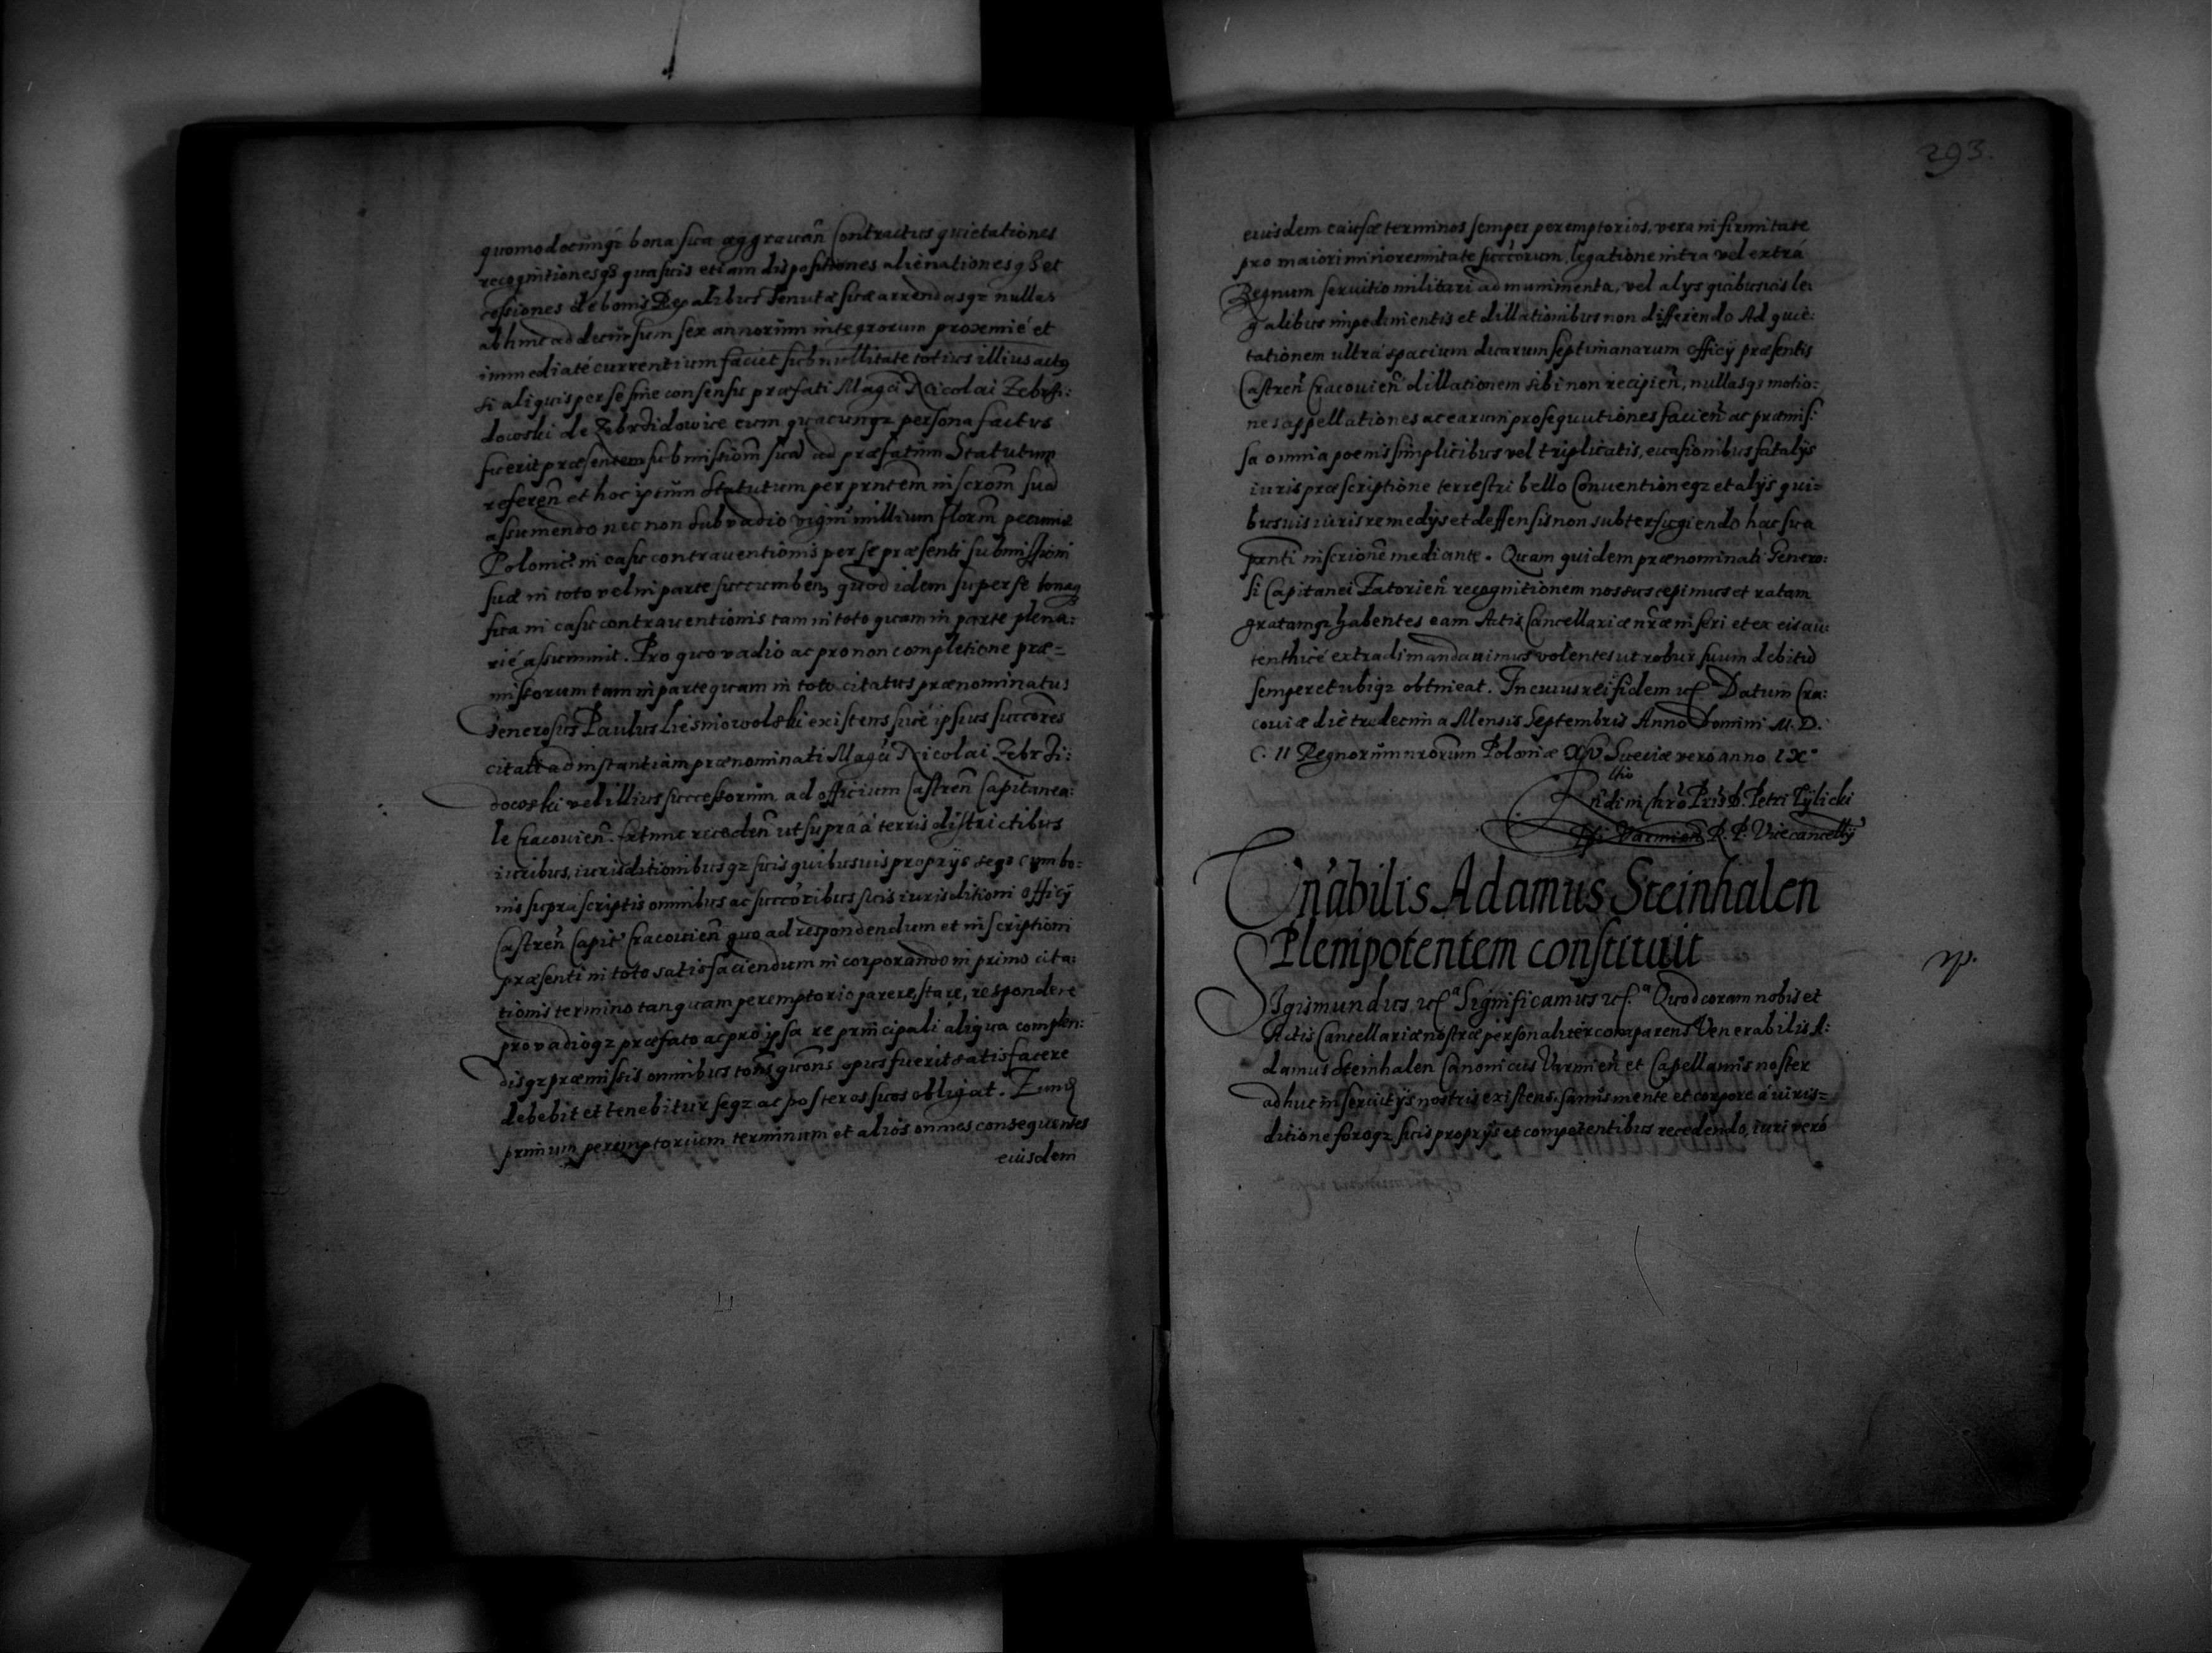 quomodocunq; bona sua aggrauan̄ Contractus quietationes
recognitionesq; quasuis etiam dispositiones alienationesq; et
cessiones de bonis Regalibus Tenutæ suæ arrendasq; nullas
ab hinc ad decursum sex annorum integrorum proxemié et
immediaté currentium faciet sub nullitate totius illius actus
si aliquis per se sine consensu præfati Magci Nicolai Zebrsi:
dowski de Zebrzidowice cum quacunq; persona factus
fuerit præsentem submissiom̄ suā ad præfatum Statutum
referen̄ et hoc ipsum Statutum per pn̄tem inscrom̄ suā
assumendo nec non sub vadio viginti millium florm̄ pecuniæ
Polonic: in casu contrauentionis per se præsenti submissioni
suæ in toto vel in parte succumben, quod idem super se bonaq;
sua in casu contrauentionis tam in toto quam in parte plena:
rié assummit. Pro quo vadio ac pro non completione præ=
missorum tam in parte quam in toto citatus prænominatus
Generosus Paulus Liesniowolski existens siué ipsius succōres
citati ad instantiam prænominati Magci Nicolai Zebrzi:
dowski vel illius successorum ad officium Castren̄ Capitanea:
le Cracouien̄. Extunc receden̄ ut supra á terris districtibus
iuribus, iurisditionibusq; suis quibusuis proprijs seq; cum bo:
nis suprascriptis omnibus ac succōribus suis iurisditioni officij
Castren̄ Capit: Cracouien̄ quo ad respondendum et inscriptioni
præsenti in toto satisfaciendum incorporando in primo cita:
tionis termino tanquam peremptorio parere, stare, respondere
pro vadioq; præfato ac pro ipsa re principali aliqua complen:
disq; præmissis omnibus toties quoties opus fuerit satisfacere
debebit et tenebitur seq; ac posteros suos obligat.
primum peremptorium terminum et alios omnes consequentes
eiusdem
293.
eiusdem causæ terminos semper peremptorios, vera infirmitate
pro maiori minoremnitate succōrum, legatione intra vel extrá
Regnum seruitio militari ad munimenta, vel alys quibusuis le:
galibus impedimentis et dillationibus non differendo Ad quie:
tationem ultrá spacium duarum septimanarum officij præsentis
Castren̄ Cracouien̄ dillationem sibi non recipien̄, nullasq; motio:
nes appellationes ac earum prosequutiones facien̄ ac præmis:
sa omnia poenis simplicibus vel triplicatis, euasionibus fatalijs
iuris præscriptione terrestri bello Conuentioneq; et alijs qui=
busuis iuris remedijs et deffensis non subterfugiendo hac sua
pn̄ti inscrione mediante. Quam quidem prænominati Genero:
si Capitanei Zatorien̄ recognitionem nos suscepimus et ratam
gratamq; habentes eam Actis Cancellariæ nr̄æ inseri et ex eis au:
tenthicé extradi mandauimus volentes ut robur suum debitū
semper et ubiq; obtineat. In cuius rei fidem etc. Datum Cra:
couiæ die tredecima Mensis Septembris Anno Domini M. D.
C. II Regnorum nrorum Poloniæ XV Sueciæ vero anno IX°
Rn̄di in Chrō Pris D. Petri Tylicki
Epi Varmien̄ R. P. Vicecancellij
Vn̄abilis Adamus Steinhalen
Plenipotentem constituit
Sigismundus etc. Significamus etc. Quod coram nobis et
Actis Cancellariæ nostræ personaliter comparens Venerabilis A:
damus Steinhalen Canonicus Varmien̄ et Capellanus noster
adhuc in seruitijs nostris existens. sanus mente et corpore á iuris=
ditione foroq; suis proprijs et competentibus recedendo, iuri veró